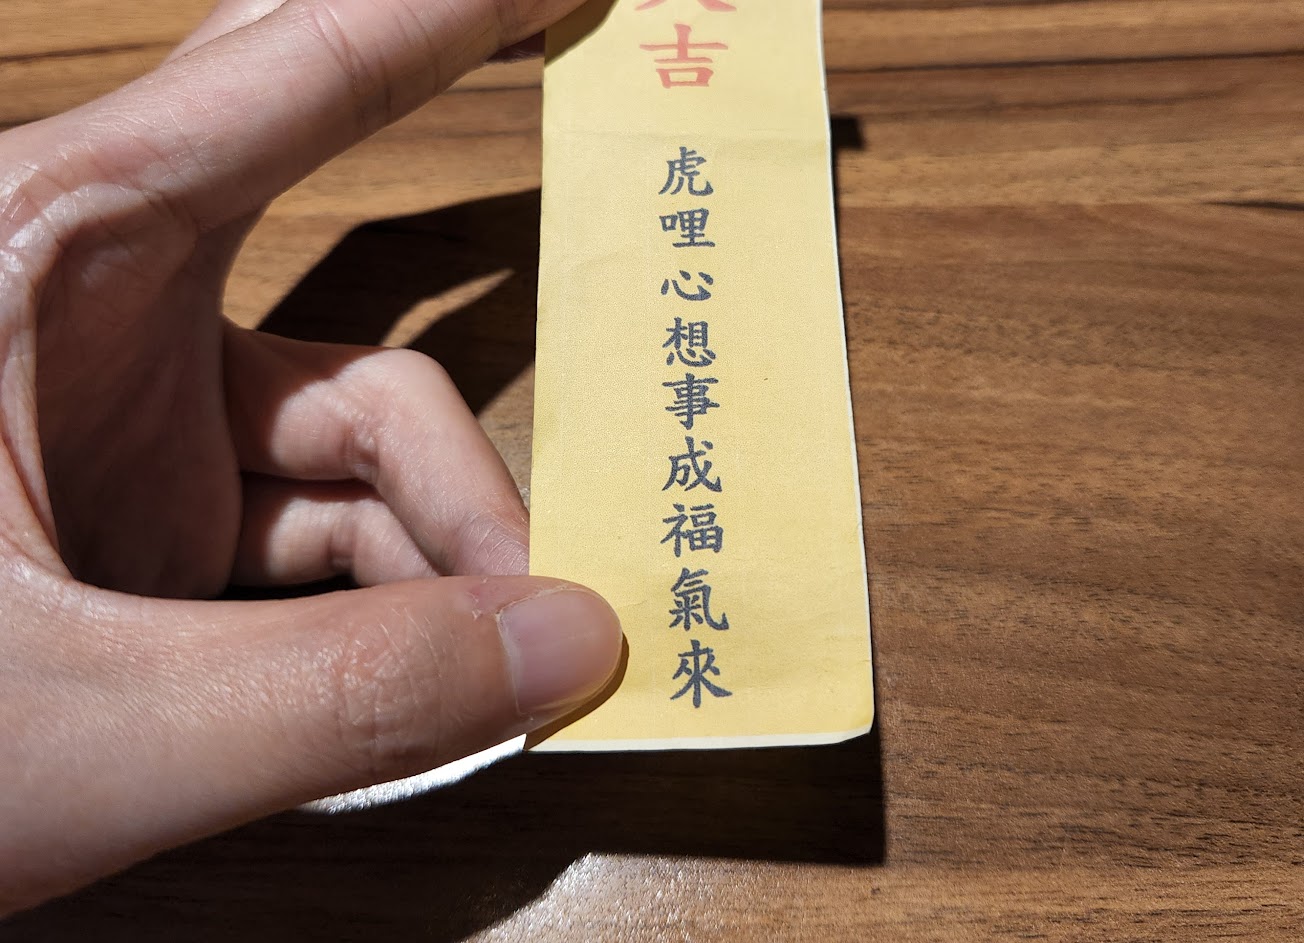 大吉
虎哩心想事成福氣來